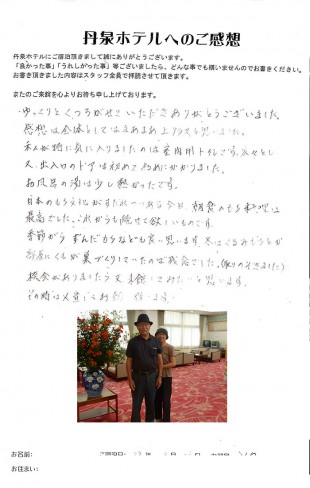 丹泉ホテルへのご感想
丹泉ホテルにご宿泊頂きまして誠にありがとうございます。
「良かった事」「うれしかった事」等ございましたら、どんな事でも構いませんのでお書きください。
お書き頂きました内容はスタッフ全員で拝読させて頂きます。
またのご来館を心よりお待ち申し上げております。
ゆっくりとくつろがせていただきありがとうございました。
感想は全体としてはまあまあ上クラスと思いました。
特に気に入りましたのは
出入口のドアは初めてお目にかかりました。
お風呂の湯は少し熱かったです。
日本のもち文化がすたれつつある今日 朝食のもち料理は
最高でした。これからも続けて欲しいものです。
季節がら ずんだもちなども良いと思います 冬はくるみもちとか
部屋にくもが巣づくりしていたのは残念でした。
機会がありましたら又来館してみたいと思います。
その時は又宜しくお願い致します。
お名前:
お住まい: